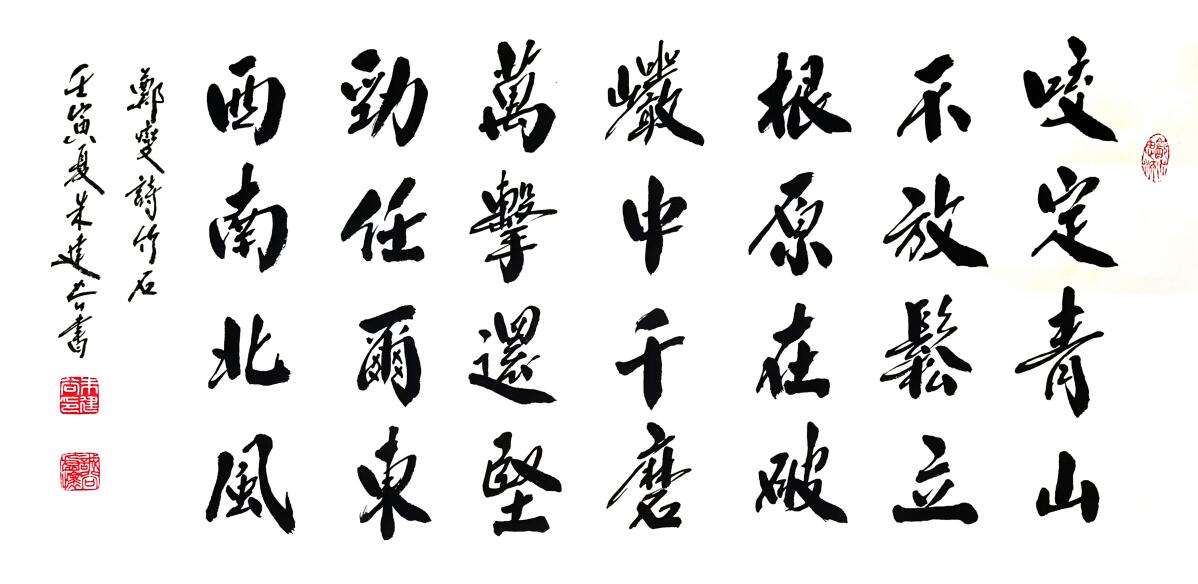 咬定青山
不放鬆立
根原在破
巖中千磨
萬擊還堅
勁任爾東
西南北風
鄭燮詩竹石
壬寅夏朱建書
朱建